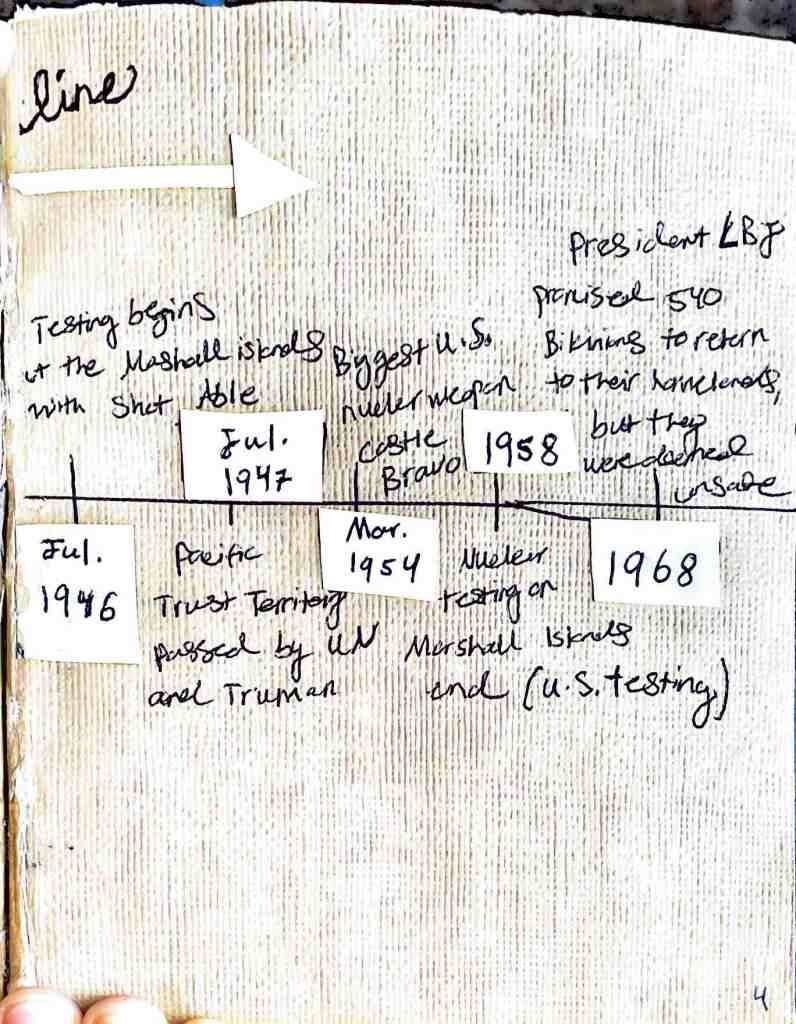 line
Testing begins
at the Mashall islands
with Shot Able
Jul.
1946
Jul.
1947
Pacific
Trust Territory
passed by UN
and Truman
Biggest U.S.
nucler weapon
Castle
Bravo
Mar.
1954
1958
Nucler
testing on
Marshall Islands
end (U.S. testing)
President LBJ
promised 540
Bikinians to retern
to their homelands,
but they
were deemed
unsafe
1968
4